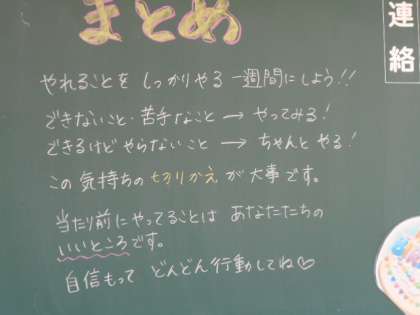 まとめ
連絡
やれることを しっかりやる 一週間にしよう!!
できないこと・苦手なこと → やってみる!
できるけどやらないこと → ちゃんと やる!
この 気持ちの 切りかえ が 大事です。
当たり前にやってることは あなたたちの
いいところです。
自信もって どんどん行動してね♡